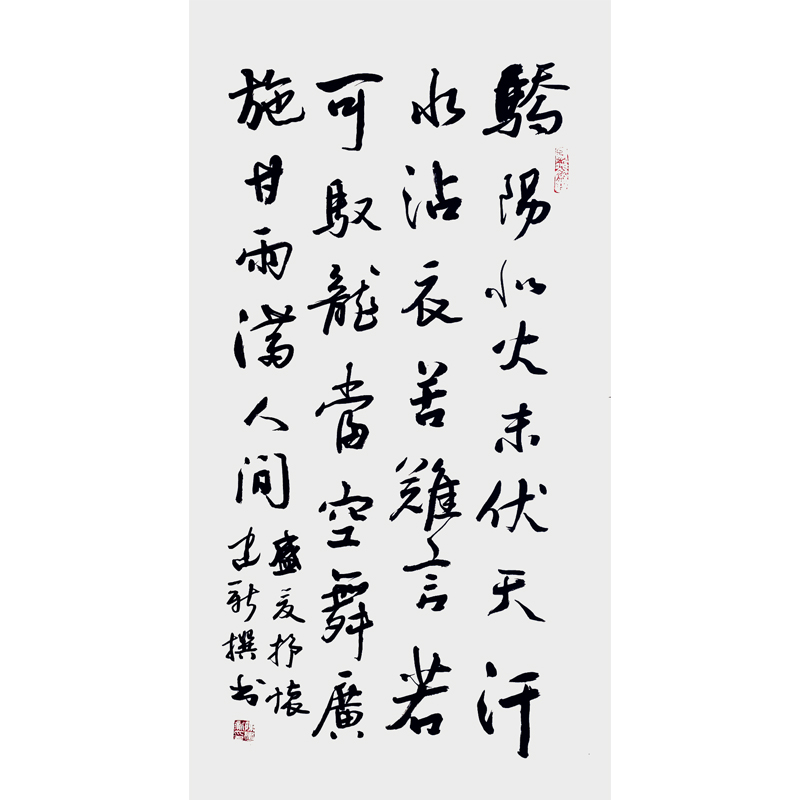 驕陽似火末伏天汗
水沾衣苦難言若
可馭龍當空舞廣
施甘雨滿人間
盛夏抒懷
建新撰书